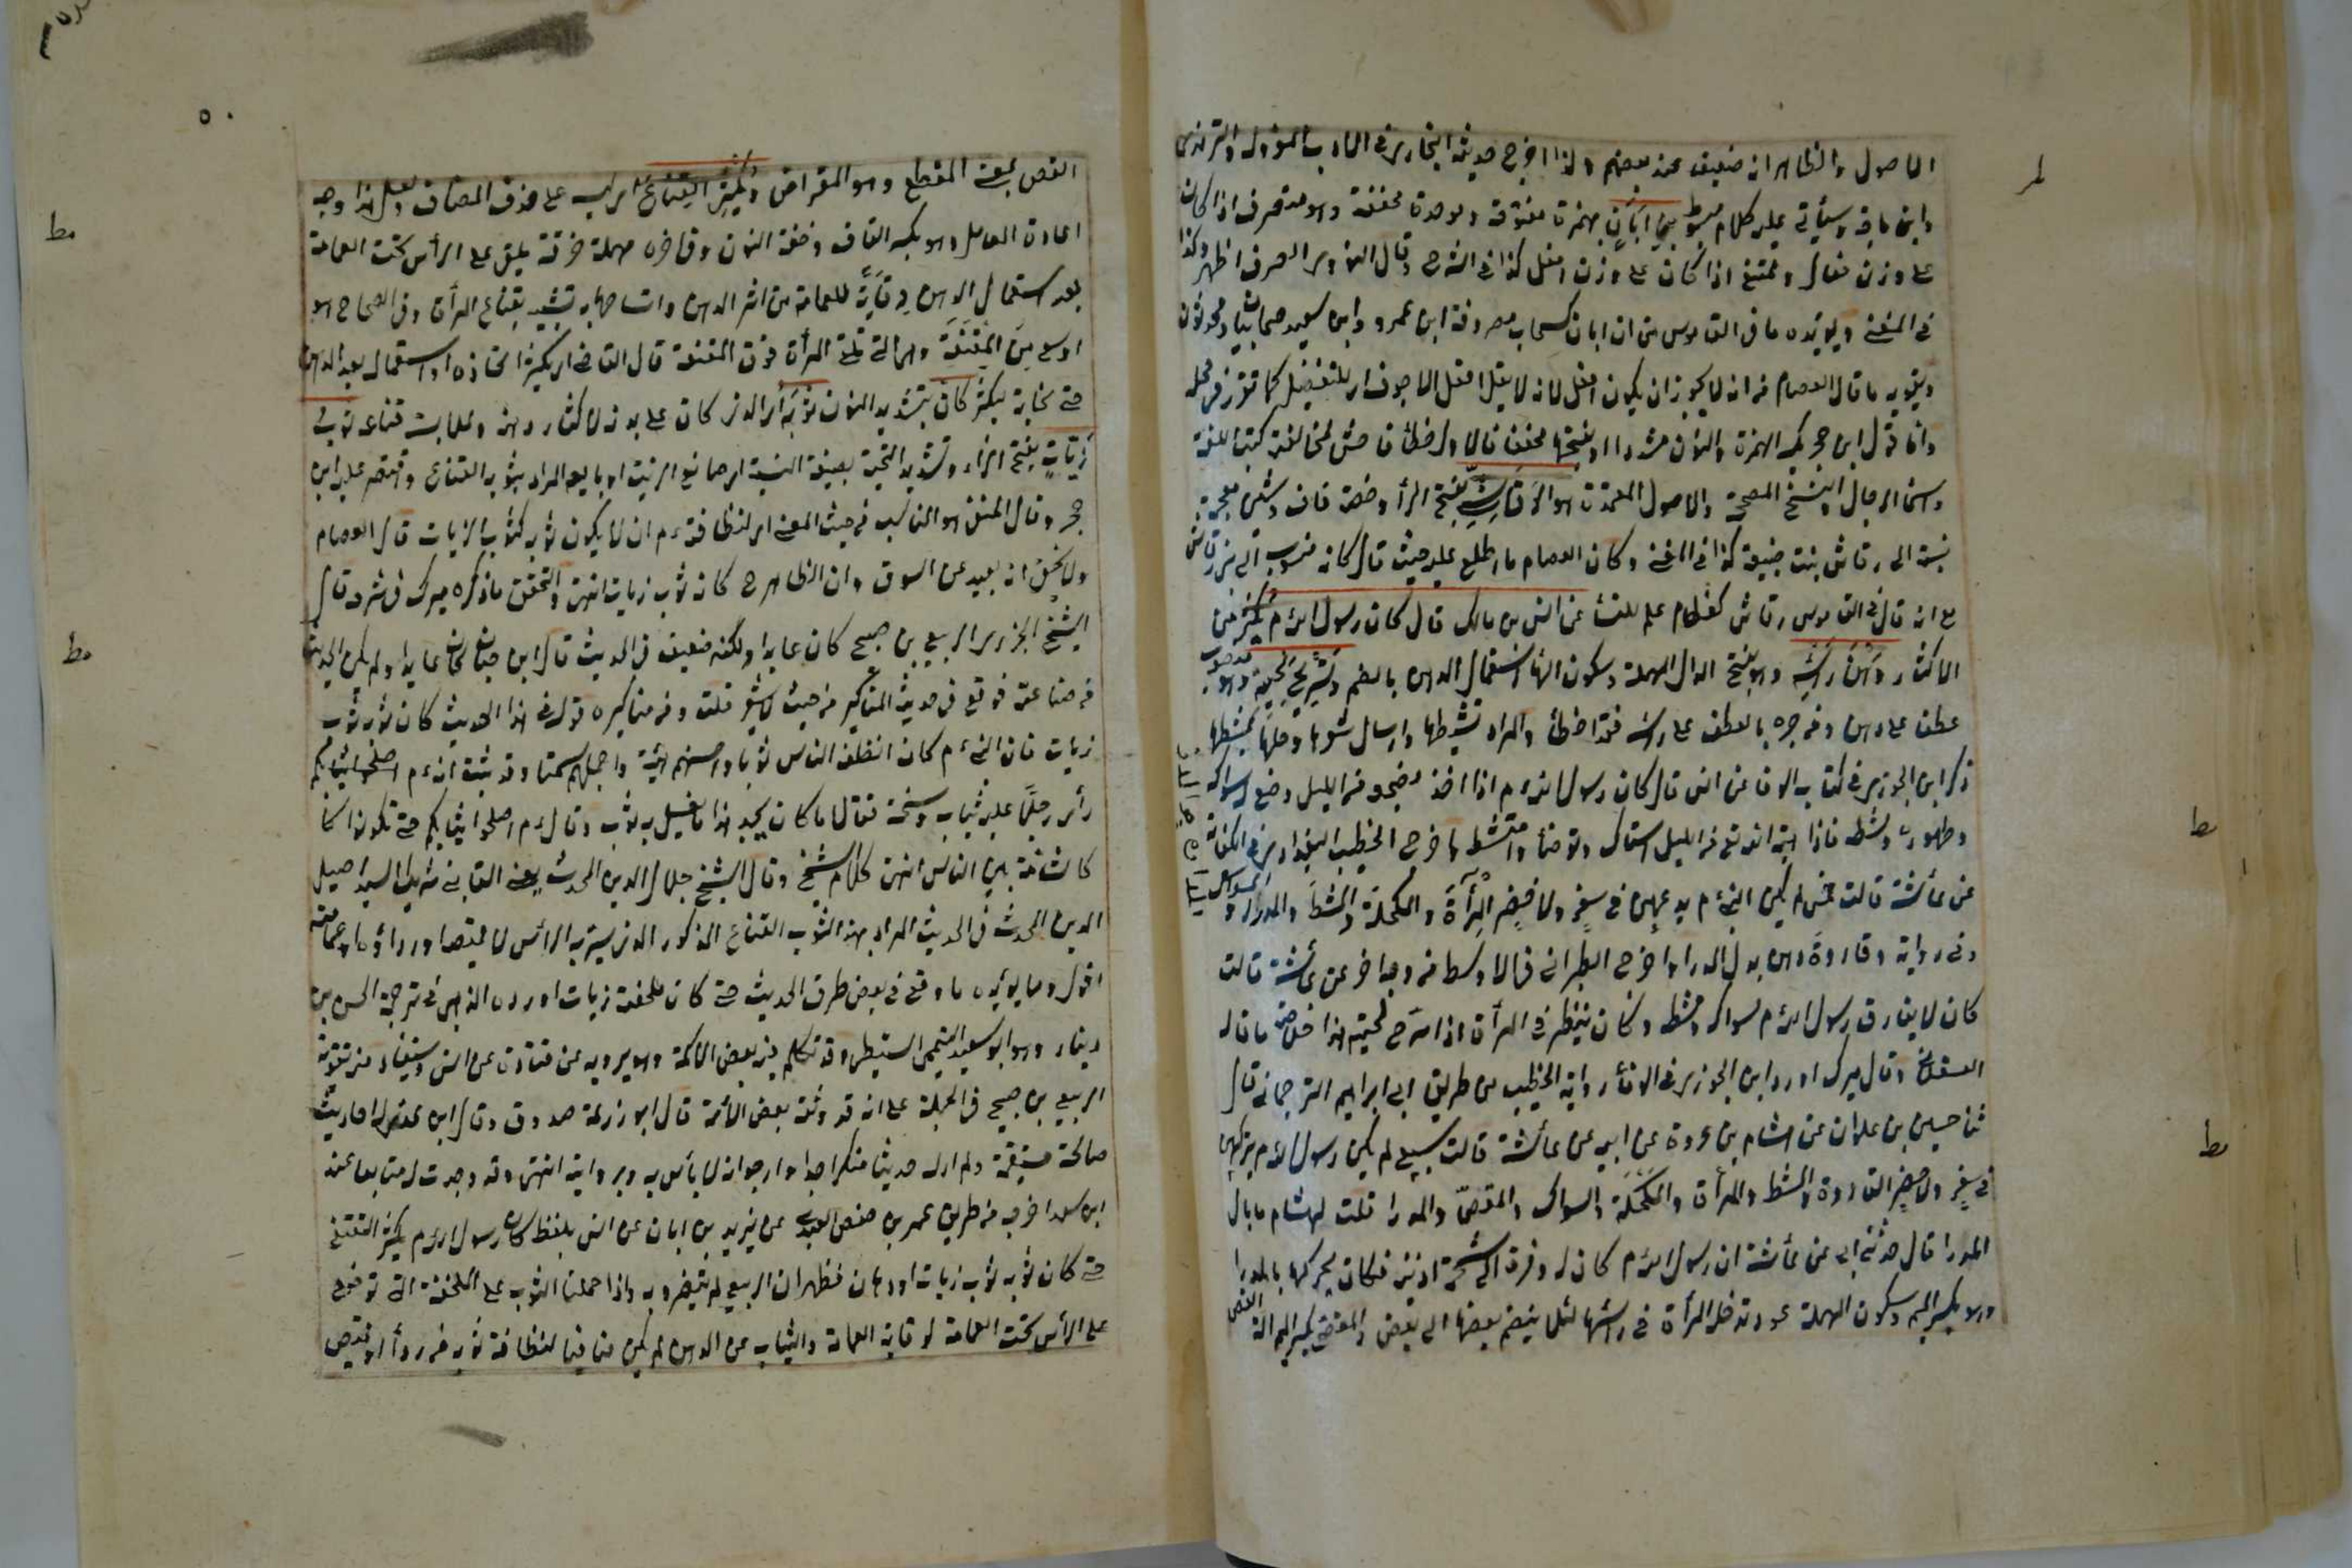 الاصول والظاهر انه ضعيف عند بعضهم ولذا اخرج حديثه البخاري في الادب المفرد والترمذي
وابن ماجة وسيأتي عليه كلام مبسوط بن ابان بهمزة مفتوحة وموحدة مخففة وهو منصرف اذا كان
على وزن فعال وممتنع اذا كان على وزن افعل كذا في الشرح وقال النووي الصرف اظهر وكذا
في المغني ويؤيده ما في القاموس من ان ابان كسحاب مصروفة ابن عمرو وابن سعيد صحابيان ومحدثون
ويقويه ما قال العصام من انه لا يجوز ان يكون افعل لانه لا يعل افعل الاجوف اي للتفضيل كما تقرر في محله
واما قول ابن حجر بكسر الهمزة والنون مشددا او بفتحها مخففا فالاول خطأ فاحش لمخالفة كتب اللغة
واسماء الرجال والنسخ المصححة والاصول المعتمدة هو الرقاشي بفتح الراء وخفة قاف وشين معجمة
نسبة الى رقاش بنت ضبيعة كذا في المغني وكان العصام ما اطلع عليه حيث قال كانه منسوب الى بني رقاش
مع انه قال في القاموس رقاش كقطام علم للنساء عن انس بن مالك قال كان رسول الله م يكثر من
الاكثار دهن رأسه وهو بفتح الدال المهملة وسكون الهاء استعمال الدهن بالضم وتسريح لحيته منصوب
عطف على دهن ومن جره بالعطف على رأسه فقد اخطأ والمراد تمشيطها وارسال شعرها وحلها بمشطها
ذكر ابن الجوزي في كتاب الوفا عن انس قال كان رسول الله م اذا اخذ مضجعه من الليل وضع له سواكه
وطهوره ومشطه فاذا هبه الله تعالى من الليل استاك وتوضأ وامتشط واخرج الخطيب البغدادي في الكفاية
عن عائشة قالت خمس لم يكن النبي م يدعهن في سفر ولا حضر المرآة والمكحلة والمشط والمدرا والسواك
وفي رواية وقارورة دهن بدل المدرا واخرج الطبراني في الاوسط من وجه اخر عن عائشة قالت
كان لا يفارق رسول الله م سواكه ومشطه وكان ينظر في المرأة اذا سرح لحيته هذا خلاصة ما قاله
العسقلاني وقال ميرك اورد ابن الجوزي في الوفاء رواية الخطيب من طريق ابي ابراهيم الترجماني قال
ثنا حسين بن علوان عن هشام بن عروة عن ابيه عن عائشة قالت سبع لم يكن رسول الله م يتركهن
في سفر ولا حضر القارورة والمشط والمرأة والمكحلة والسواك والمقص والمدرا قلت لهشام ما بال
المدرا قال حدثني ابي عن عائشة ان رسول الله م كان له وفرة الى شحمة اذنيه فكان يحركها بالمدرا
وهو بكسر الميم وسكون المهملة عود تدخله المرأة في رأسها لئلا ينضم بعضها الى بعض والمقص بكسر الميم الة القص
٥٠
القص بمعنى المقطع وهو المقراض ويكثر القناع اي لبسه على حذف المضاف ولعل هذا وجه
اعادة العامل وهو بكسر القاف وخفة النون وفي اخره مهملة خرقة تلقى على الرأس تحت العمامة
بعد استعمال الدهن وقاية للعمامة من اثر الدهن واتساخها به تشبيه بقناع المرأة وفي الصحاح هو
اوسع من المقنعة وهي التي تلقي المرأة فوق المقنعة قال القاضي اي يكثر اتخاذه او استعماله بعد الدهن
حتى غاية ليكثر كأن بتشديد النون ثوبه اي الذي كان على بدنه لاكثار دهنه وملابسة قناعه ثوب
زيات بفتح الزاء وتشديد التحية بصيغة النسبة اي صانع الزيت او بايعه المراد بثوبه القناع واقتصر عليه ابن
حجر وقال الحنفي هو المناسب من حيث المعنى اي لنظافته م ان لا يكون ثوبه كثوب الزيات قال العصام
ولا يخفى انه بعيد عن السوق وان الظاهر ح كانه ثوب زيات انتهى والتحقيق ما ذكره ميرك في شرحه قال
الشيخ الجزري الربيع بن صبيح كان عابدا ولكنه ضعيف في الحديث قال ابن حبان كان عابدا ولم يكن الحديث
من صناعته فوقع في حديثه المناكير من حيث لا يشعر قلت ومن مناكيره قوله في هذا الحديث كان ثوبه ثوب
زيات فان النبي م كان انظف الناس ثوبا واحسنهم هيئة واجملهم سمتا وقد ثبت انه م
رأى رجلا عليه ثياب وسخة فقال ما كان يجد هذا ما يغسل به ثوبه وقال م اصلحوا ثيابكم حتى تكونوا
كالشامة بين الناس انتهى كلام الشيخ وقال الشيخ جلال الدين المحدث يعني القابنى شريك السيد اصيل
الدين المحدث في الحديث المراد بهذا الثوب القناع المذكور الذي يستر به الرأس لا قميصه او رداؤه او عمامته
اقول ومما يؤيده ما وقع في بعض طرق الحديث حتى كان ملحفته زيات اورده الذهبي في ترجمة الحسن بن
دينار وهو ابو سعيد التميمي السليطي وقد تكلم فيه بعض الائمة وهو يرويه عن قتادة عن انس ويستفاد من تقوية
الربيع بن صبيح في الجملة على انه قد وثقه بعض الائمة قال ابو زرعة صدوق وقال ابن عدي له احاديث
صالحة مستقيمة ولم ار له حديثا منكرا جدا وارجو انه لا بأس به وبرواياته انتهى وقد وجدت له متابعا عند
ابن سعد اخرجه من طريق عمر بن حفص العبدي عن يزيد بن ابان عن انس بلفظ كان رسول الله م يكثر التقنع
حتى كان ثوبه ثوب زيات او دهان فظهر ان الربيع لم يتفرد به واذا حملنا الثوب على الملحفة التي توضع
على الرأس تحت العمامة لوقاية العمامة والثياب عن الدهن لم يكن منافيا لنظافة ثوبه من رداء او قميص